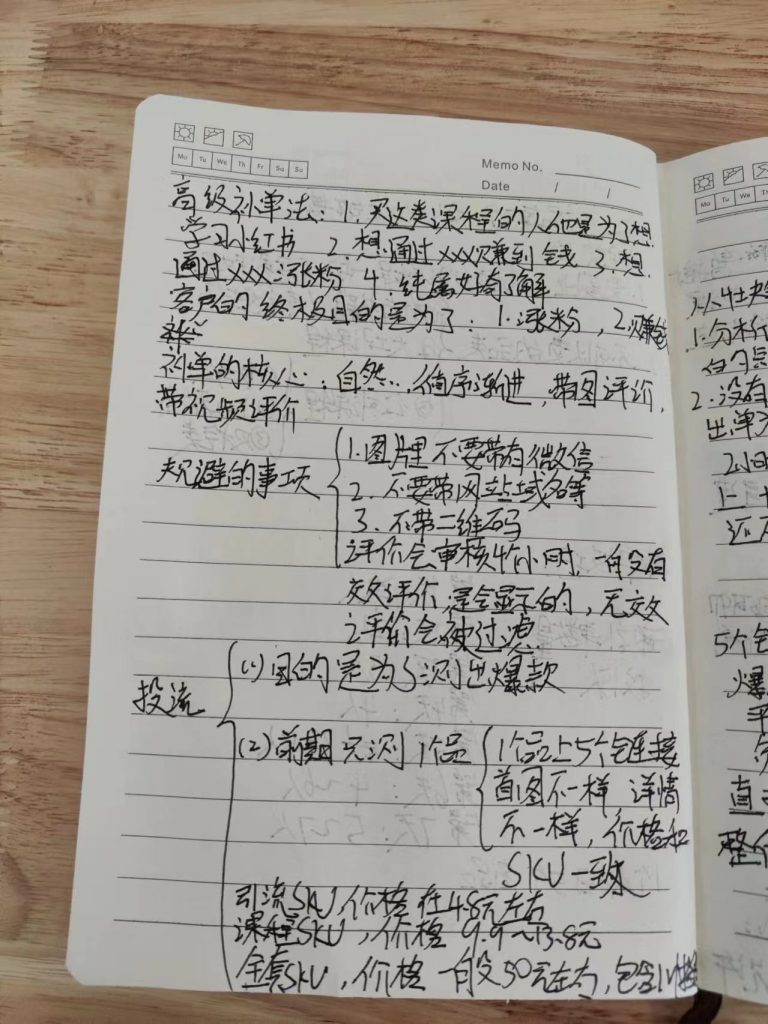 Mo Tu We Th Fr Sa Su
Memo No.
Date / /
高级补单法：1. 买这类课程的人他是为了想
学习小红书 2. 想通过xxx赚到钱 3. 想
通过xxx涨粉 4. 纯属好奇了解
客户的终极目的是为了：1. 涨粉，2. 赚钱
补单的核心：自然，循序渐进，带图评价，
带视频评价
规避的事项
1. 图片里不要带有微信
2. 不要带网站域名等
3. 不带二维码
评价会审核4个小时，一般有
效评价是会显示的，无效
评价会被过滤
投流
(1) 目的是为了测出爆款
(2) 前期 测1个品
1个品上5个链接
首图不一样 详情
不一样，价格和
SKU一致
引流SKU，价格在4.8元左右
课程SKU，价格9.9~13.8元
全套SKU，价格一般50元左右，包含
Mo Tu We Th
1. 分析
2. 没有
出单
5个
爆
平
直
整个